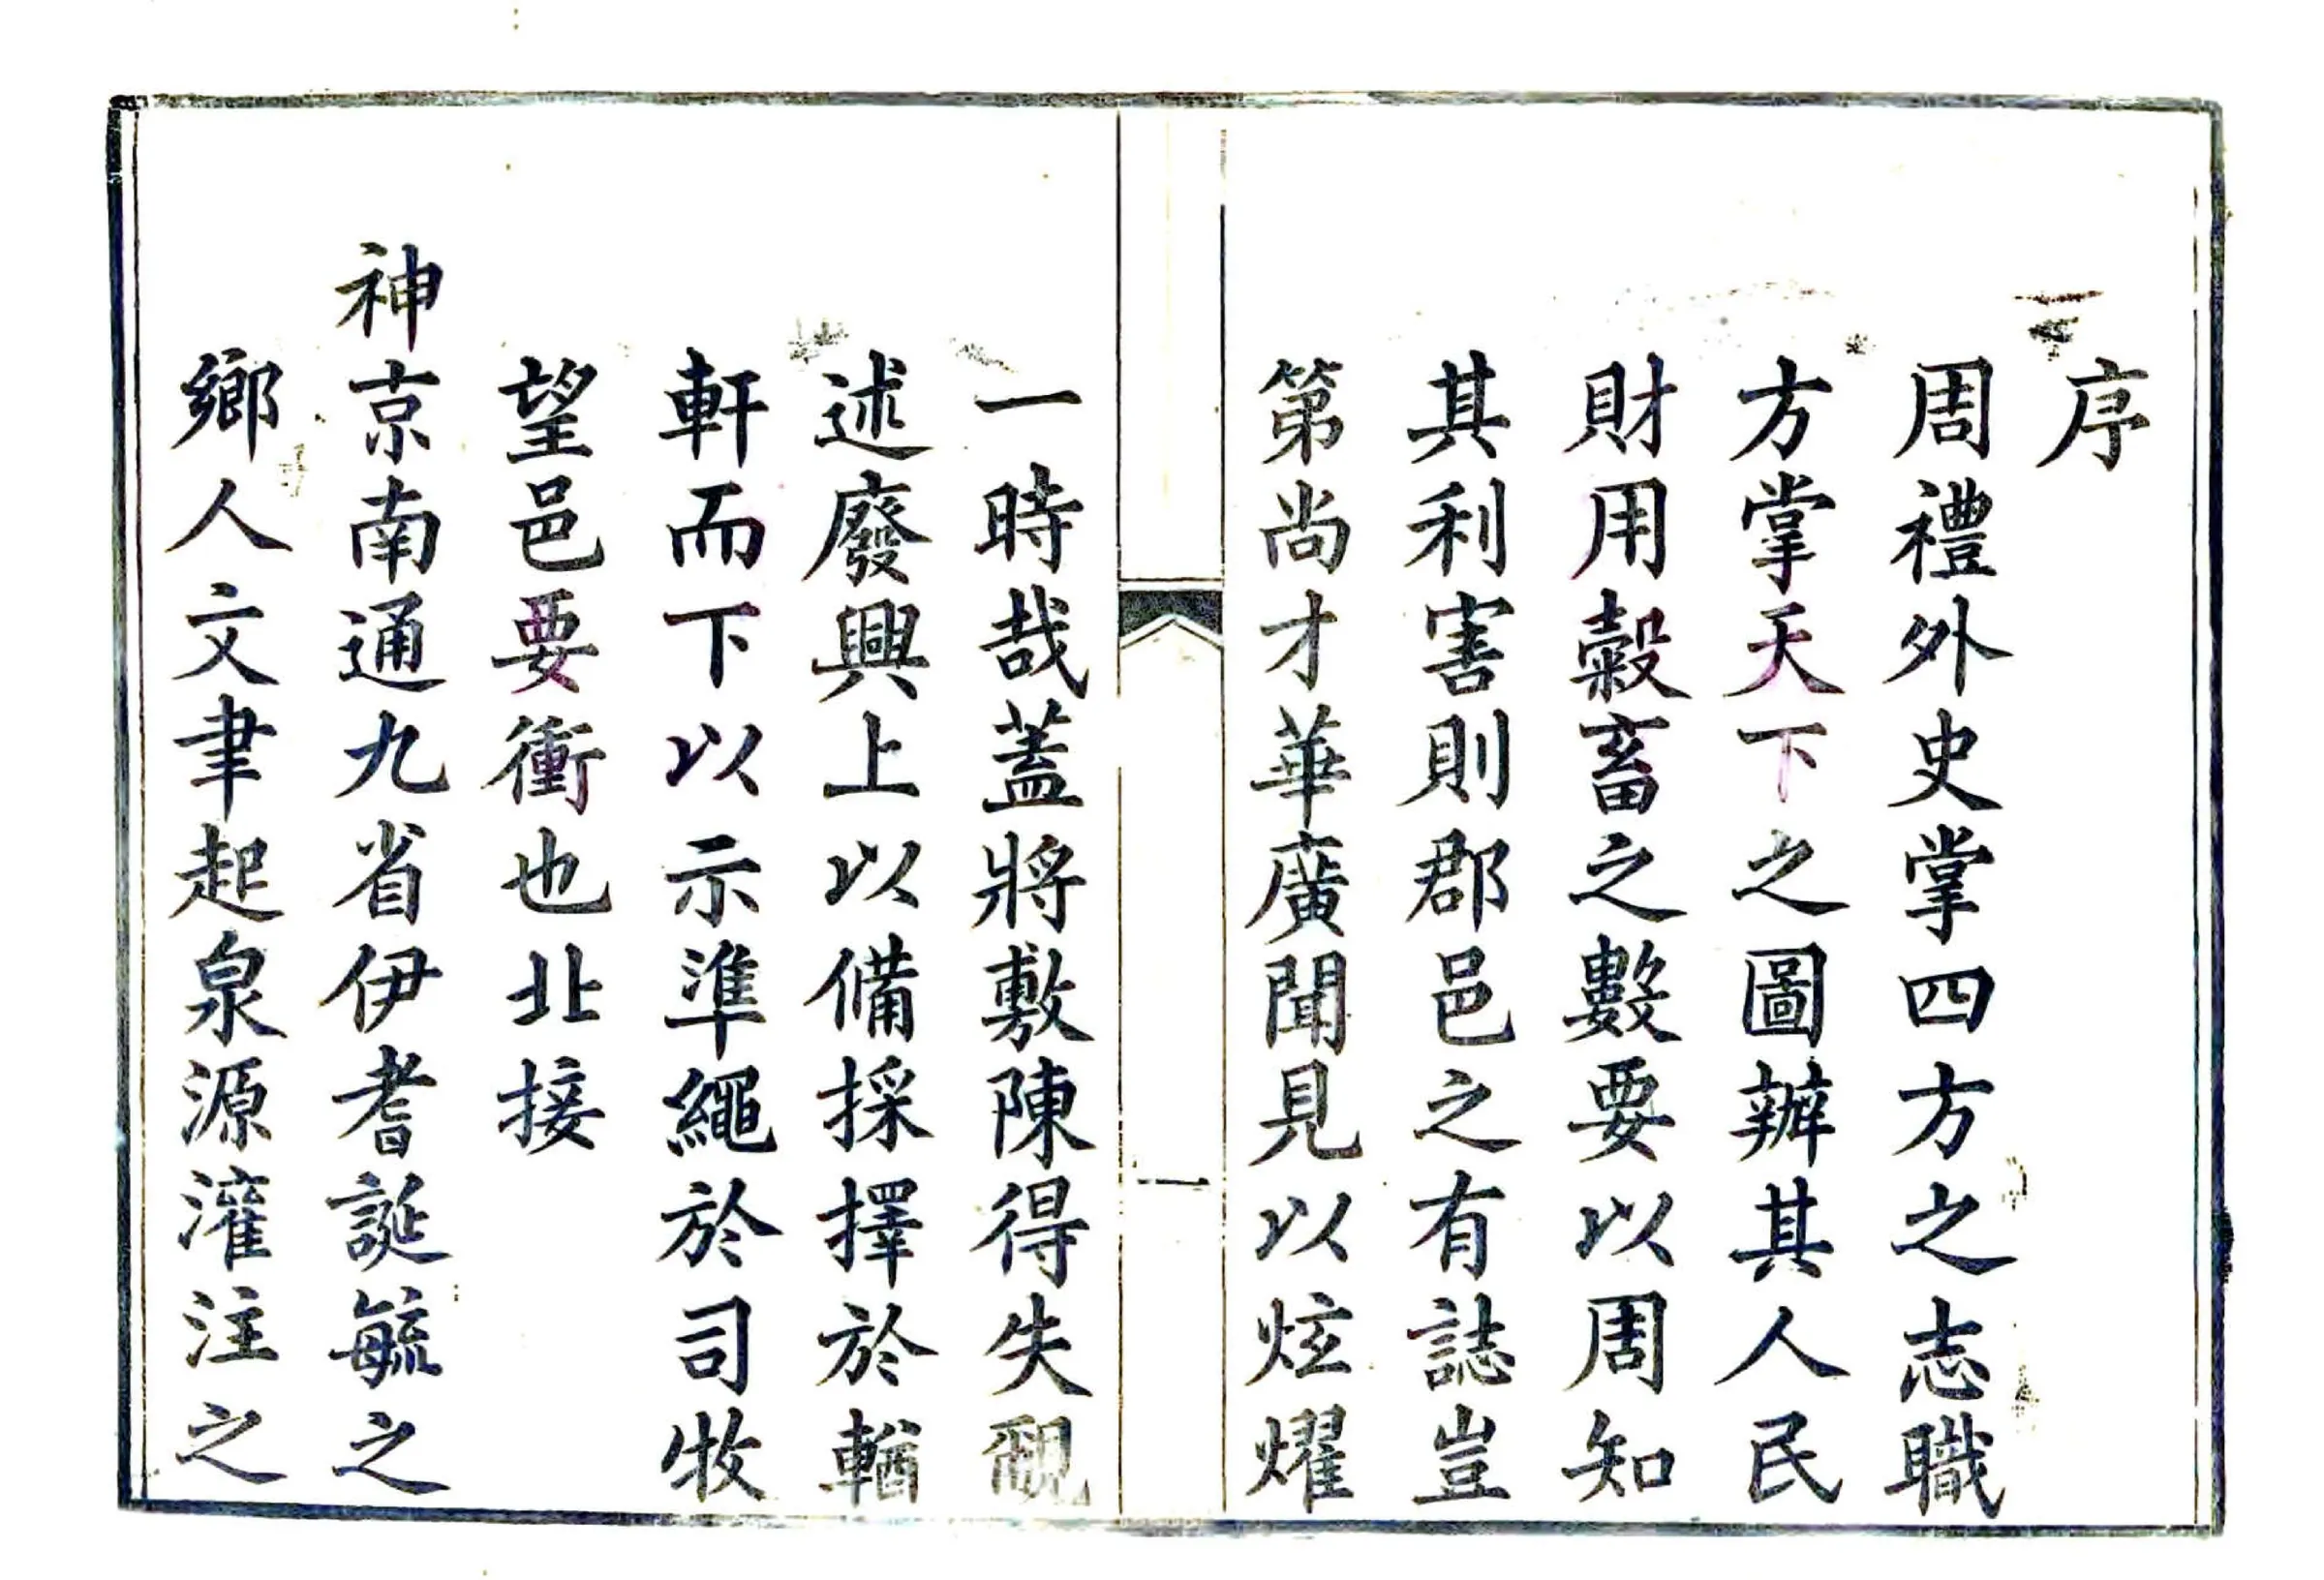 序
周禮外史掌四方之志職
方掌天下之圖辨其人民
財用穀畜之數要以周知
其利害則郡邑之有誌豈
第尚才華廣聞見以炫燿
一
一時哉蓋將敷陳得失覼
述廢興上以備採擇於輶
軒而下以示準繩於司牧
望邑要衝也北接
神京南通九省伊耆誕毓之
鄉人文聿起泉源灌注之